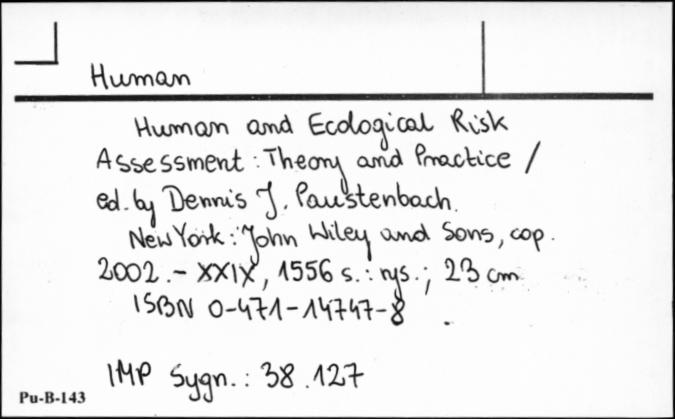 Human
Human and Ecological Risk
Assessment : Theory and Practice /
ed. by Dennis J. Paustenbach.
New York : John Wiley and Sons, cop.
2002. - XXIX, 1556 s. : rys. ; 23 cm
ISBN 0-471-14747-8
IMP Sygn. : 38.127
Pu-B-143